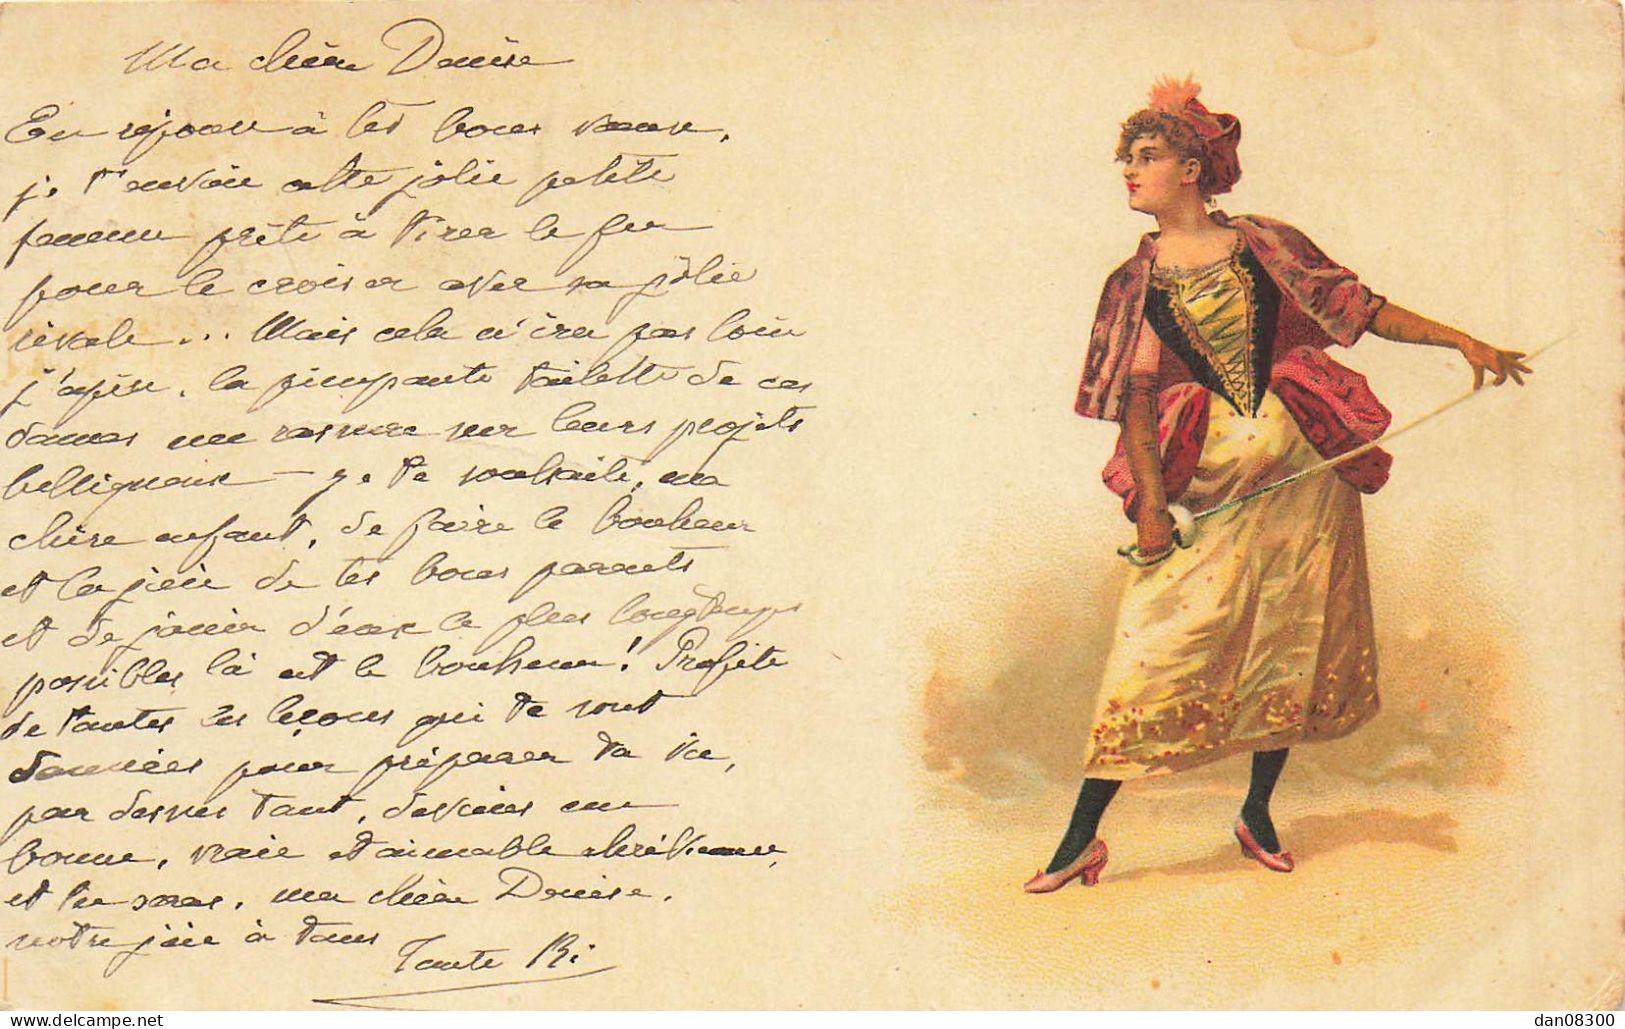 Ma chère Denise
En réponse à tes bons vœux,
je t'envoie cette jolie petite
femme prête à tirer le fer
pour le croiser avec sa jolie
rivale... Mais cela n'ira pas loin
j'espère, la pimpante toilette de ces
dames me rassure sur leurs projets
belliqueux — Je te souhaite, ma
chère enfant, de faire le bonheur
et la joie de tes bons parents
et de jouir d'eux le plus longtemps
possibles là est le bonheur! Profite
de toutes les leçons qui te sont
données pour préparer ta vie,
par dessus tout, deviens une
bonne, vraie et aimable chrétienne,
et tu seras, ma chère Denise,
notre joie à tous
Tante Ri
dan08300